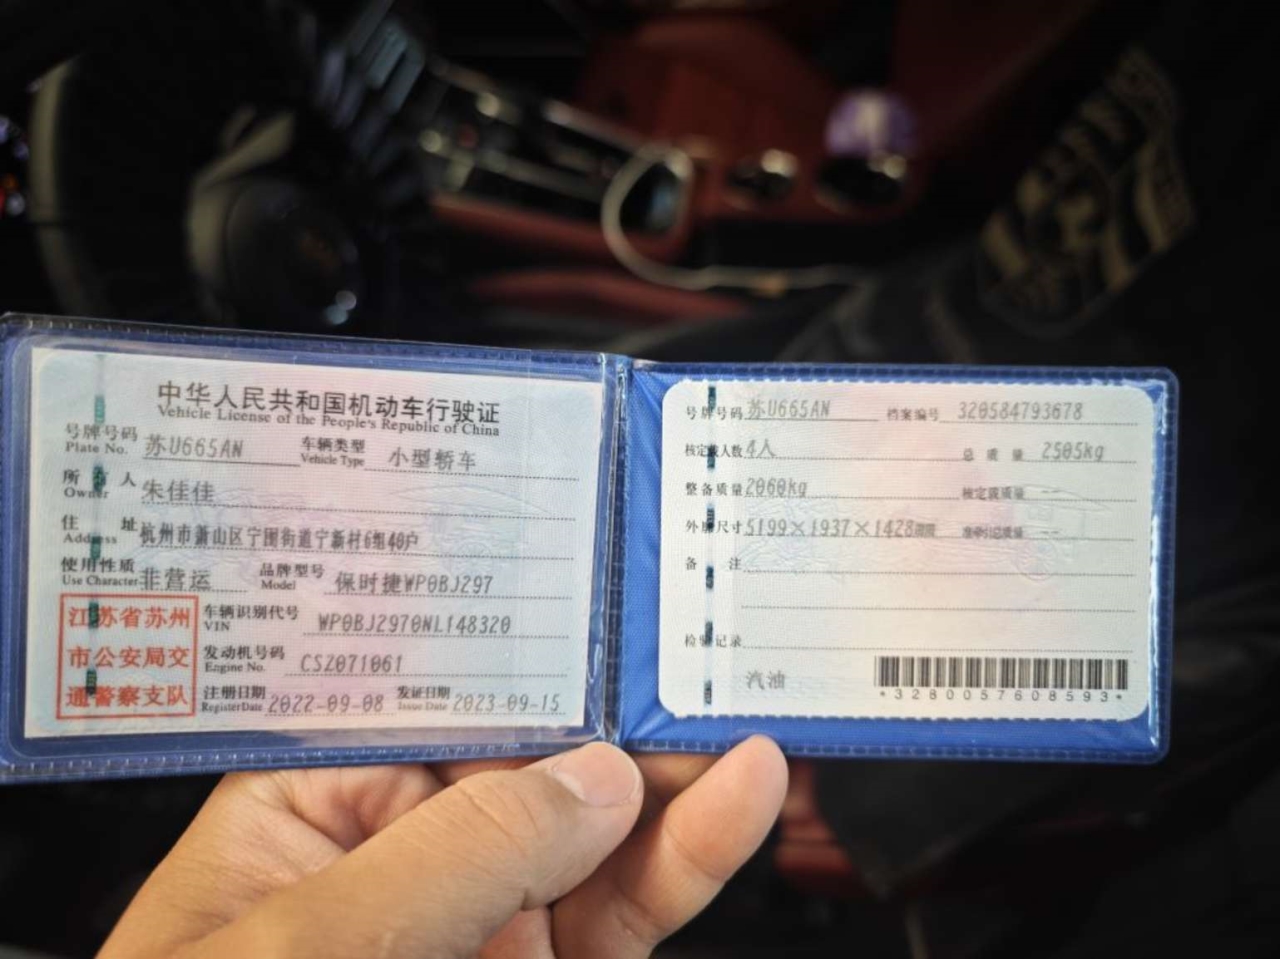 中华人民共和国机动车行驶证
Vehicle License of the People's Republic of China
号牌号码 苏U665AN 车辆类型 小型轿车
Plate No. Vehicle Type
所有人 朱佳佳
Owner
住址 杭州市萧山区宁围街道宁新村6组40户
Address
使用性质 非营运 品牌型号 保时捷WP0BJ297
Use Character Model
江苏省苏州
市公安局交
通警察支队
车辆识别代号 WP0BJ2970NL148320
VIN
发动机号码 CSZ071061
Engine No.
注册日期 2022-09-08 发证日期 2023-09-15
Register Date Issue Date
号牌号码 苏U665AN 档案编号 320584793678
核定载人数 4人 总质量 2505kg
整备质量 2060kg 核定载质量 --
外廓尺寸 5199×1937×1428mm 准牵引总质量 --
备注
检验记录
汽油
*3280057608593*